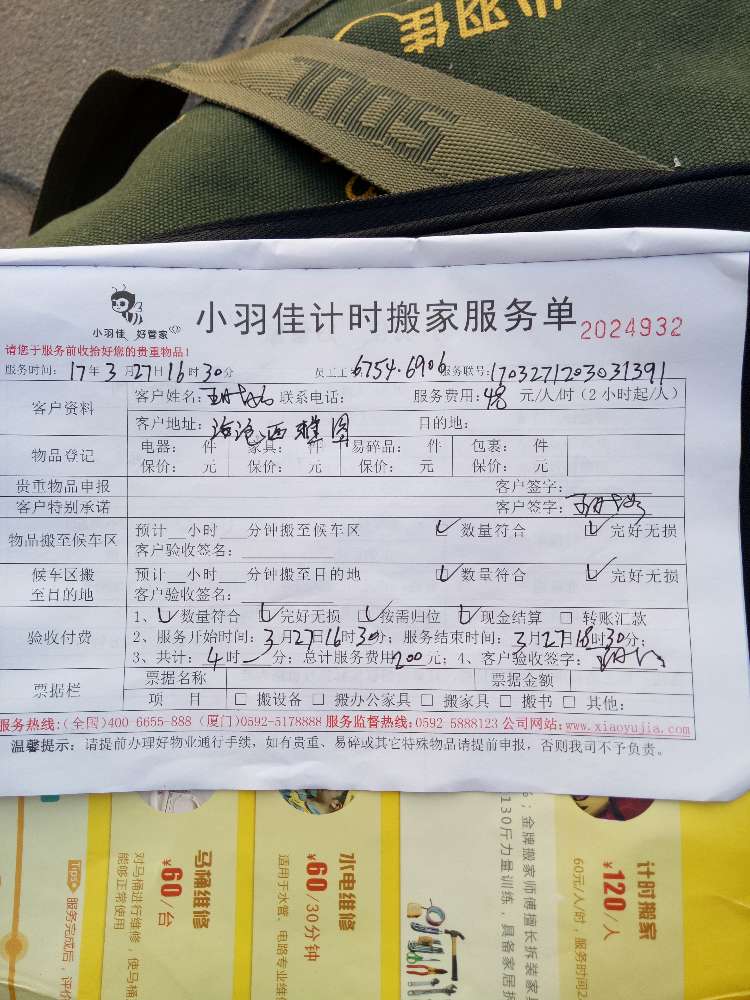 小羽佳
TIPS
小羽佳 好管家
小羽佳计时搬家服务单
2024932
请您于服务前收拾好您的贵重物品!
服务时间: 17年3月27日16时30分 员工工 6754.6906 服务联号: 1703271203031391
客户资料
客户姓名: 联系电话: 服务费用: 48 元/人/时(2小时起/人)
客户地址: 海沧西雅图 目的地:
物品登记
电器: 件 家具: 件 易碎品: 件 包裹: 件
保价: 元 保价: 元 保价: 元 保价: 元
贵重物品申报 客户签字:
客户特别承诺 客户签字:
物品搬至候车区
预计__小时___分钟搬至候车区 数量符合 完好无损
客户验收签名:
候车区搬至目的地
预计__小时___分钟搬至目的地 数量符合 完好无损
客户验收签名:
验收付费
1、数量符合 完好无损 按需归位 现金结算 □ 转账汇款
2、服务开始时间: 3月27日16时30分; 服务结束时间: 3月27日18时30分;
3、共计: 4时 分; 总计服务费用200元; 4、客户验收签字:
票据栏
票据名称 票据金额
项 目 □ 搬设备 □ 搬办公家具 □ 搬家具 □ 搬书 □ 其他:
服务热线:(全国)400-6655-888 (厦门)0592-5178888 服务监督热线:0592-5888123 公司网站:www.xiaoyujia.com
温馨提示: 请提前办理好物业通行手续, 如有贵重、易碎或其它特殊物品请提前申报, 否则我司不予负责。
计时搬家
¥120/人
60元/人/时, 服务时间2
; 金牌搬家师傅擅长拆装家
130斤力量训练, 具备家居拆
水电维修
¥60/30分钟
适用于水管、电路专业维
马桶维修
¥60/台
对马桶进行维修, 使马桶
能够正常使用
Tips
服务完成后, 评价